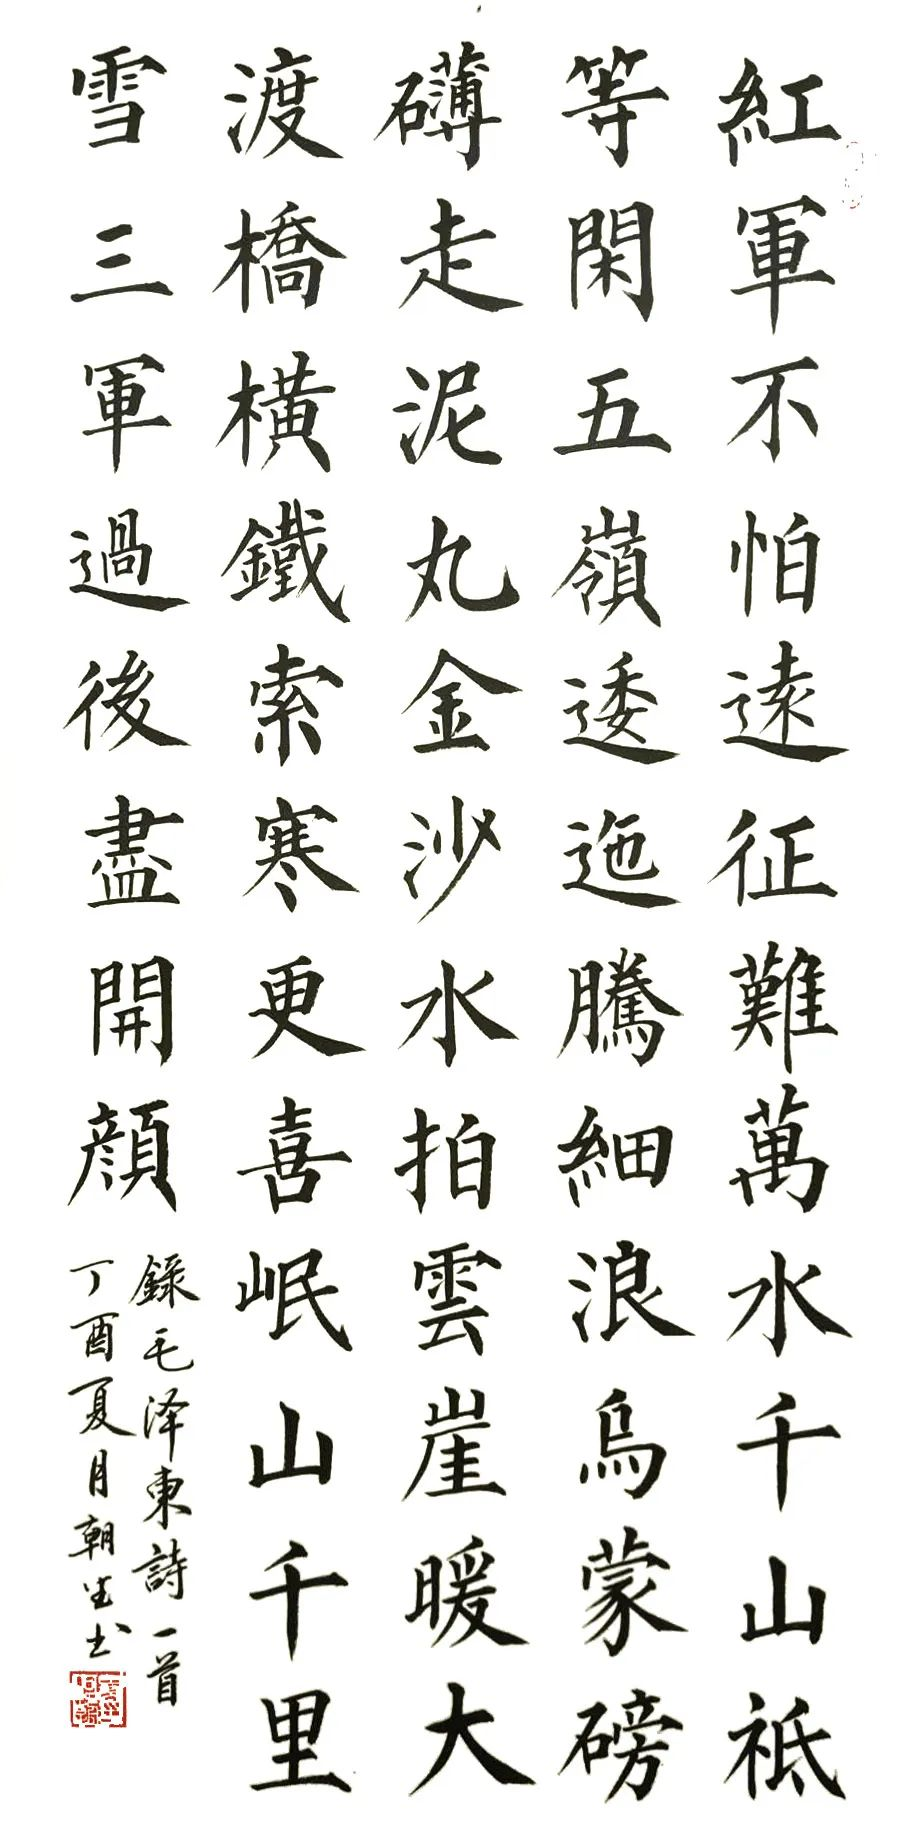 紅軍不怕遠征難萬水千山祗
等閑五嶺逶迤騰細浪烏蒙磅
礴走泥丸金沙水拍雲崖暖大
渡橋橫鐵索寒更喜岷山千里
雪三軍過後盡開顔
錄毛泽東詩一首
丁酉夏月朝生书